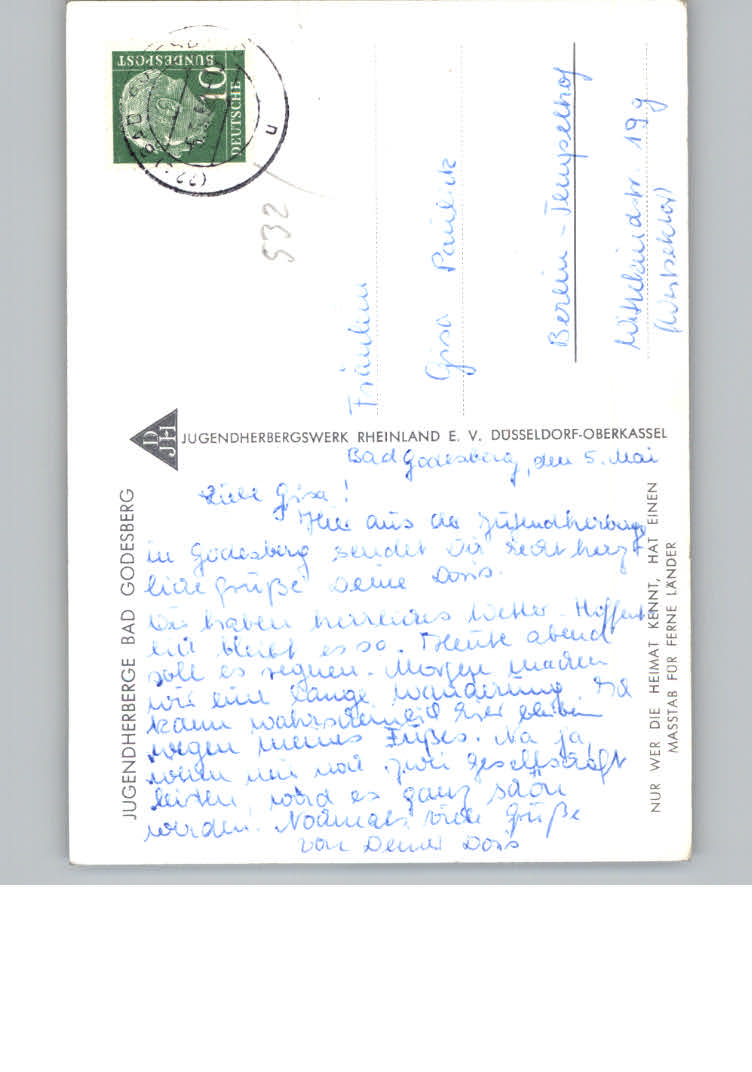 JUGENDHERBERGE BAD GODESBERG
Bad Godesberg, den 5. Mai
Liebe Gisa!
Hier aus der Jugendherberge
in Godesberg sendet Dir recht herz-
liche Grüße Deine Doris.
Wir haben herrliches Wetter. Hoffent-
lich bleibt es so. Heute abend
soll es regnen. Morgen machen
wir eine lange Wanderung. Ich
kann wahrscheinlich hier bleiben
wegen meines Fußes. Na ja,
wenn mir noch zwei Gesellschaft
leisten, wird es ganz schön
werden. Nochmals viele Grüße
von Deiner Doris
NUR WER DIE HEIMAT KENNT, HAT EINEN
MASSTAB FÜR FERNE LÄNDER
DJH
JUGENDHERBERGSWERK RHEINLAND E. V. DÜSSELDORF-OBERKASSEL
Fräulein
Gisa
Berlin - Tempelhof
19g
(Westsektor)
DEUTSCHE
BUNDESPOST
10
532
(22
BAD
n